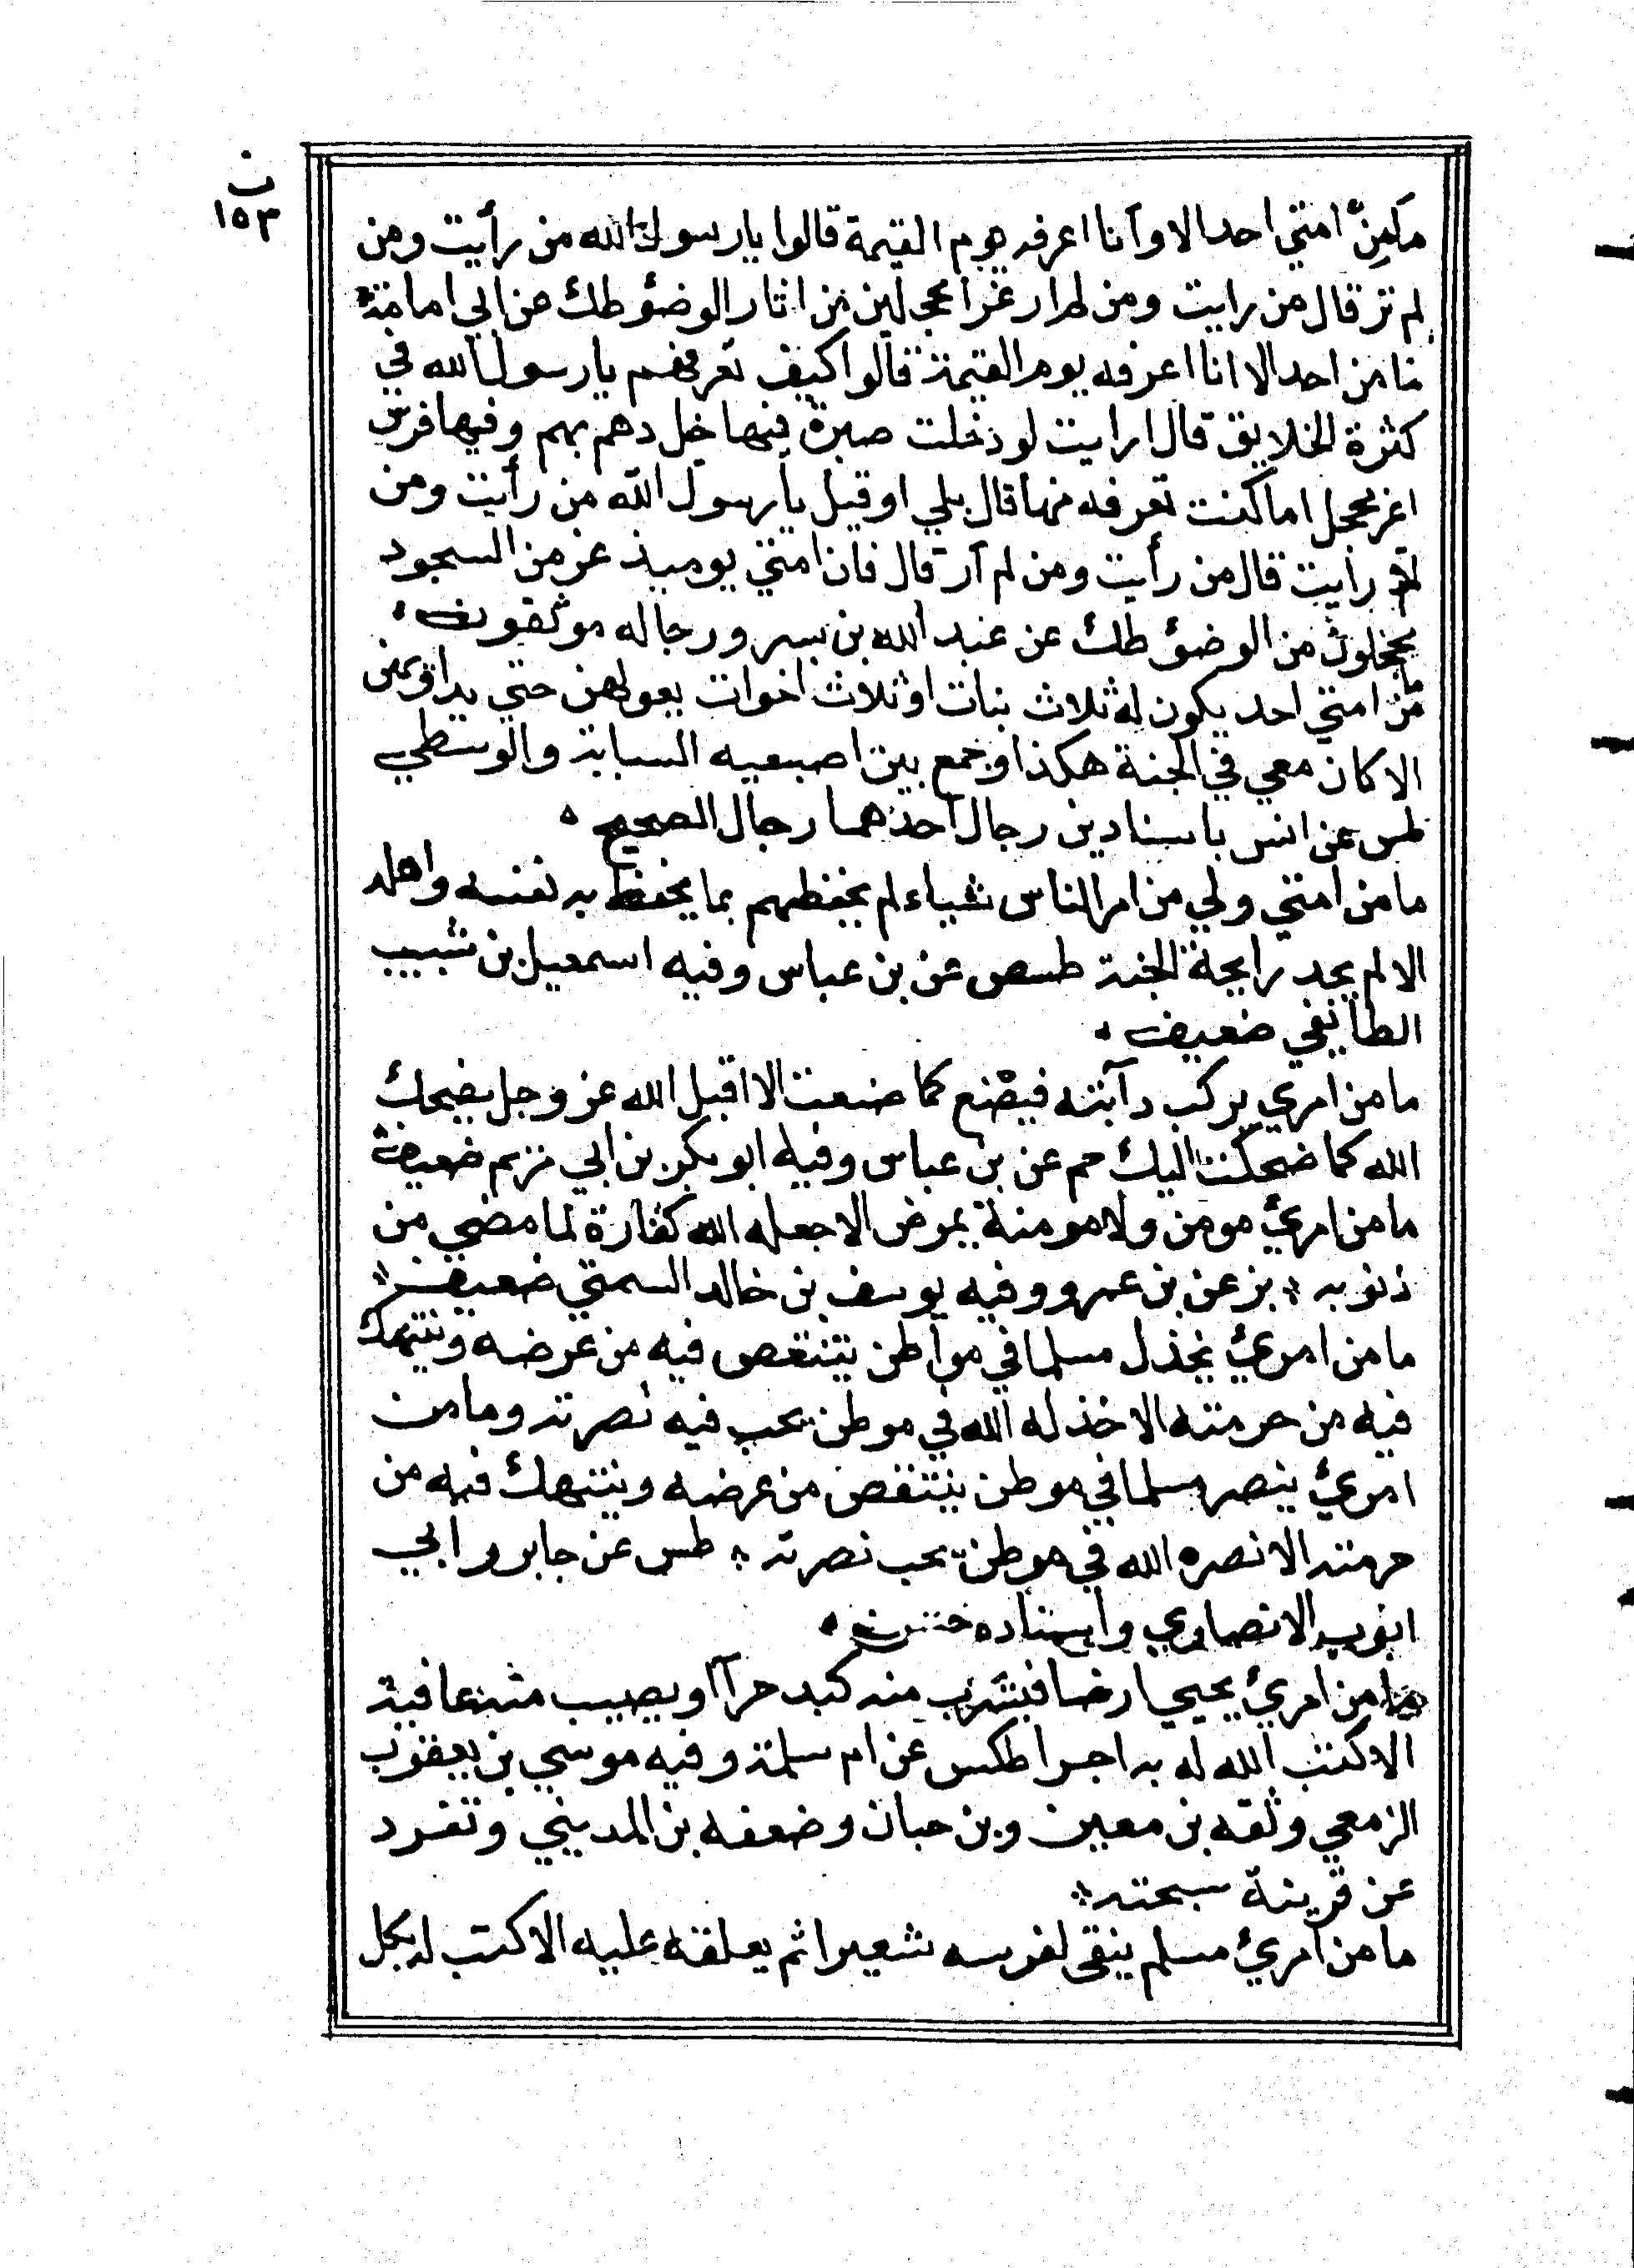 ن
١٥٣
ما من امتي احد الا وانا اعرفه يوم القيمة قالوا يا رسول الله من رأيت ومن
لم تر قال من رايت ومن لم ار غرا محجلين من اثار الوضؤ طك عن ابي امامة
ما من احد الا انا اعرفه يوم القيمة قالوا كيف تعرفهم يا رسول الله في
كثرة الخلايق قال ارايت لو دخلت صبرة فيها خيل دهم بهم وفيها فرس
اغر محجل اما كنت تعرفه منها قال بلي او قيل يا رسول الله من رأيت ومن
رأيت قال من رأيت ومن لم أر قال فان امتي يوميذ غر من السجود
محجلون من الوضؤ طك عن عبد الله بن بسر ورجاله موثقون
ما من امتي احد يكون له ثلاث بنات او ثلاث اخوات يعولهن حتي
الا كان معي في الجنة هكذا وجمع بين اصبعيه السبابة والوسطي
طس عن انس باسنادين رجال احدهما رجال الصحيح ه
ما من امتي ولي من امر الناس شياء لم يحفظهم بما يحفظ به نفسه واهله
الا لم يجد رايحة الجنة طسص عن بن عباس وفيه اسمعيل بن شبيب
الطايفي ضعيف
ما من امري يركب دآبته فيصنع كما صنعت الا اقبل الله عز وجل يضحك
الله كما ضحكت اليك حم عن بن عباس وفيه ابو بكر بن ابي مريم ضعيف
ما من امرئ مومن ولا مومنة يمرض الا جعله الله كفارة لما مضي من
ذنوبه بز عن بن عمرو وفيه يوسف بن خالد السمتي ضعيف
ما من امرئ يخذل مسلما في مواطن يتنقص فيه من عرضه وينتهك
فيه من حرمته الا خذله الله في موطن يحب فيه نصرته وما من
امرئ ينصر مسلما في موطن ينتقص من عرضه وينتهك فيه من
حرمته الا نصره الله في موطن يحب نصرته طس عن جابر وابي
ايوب الانصاري واسناده حسن
ما من امرئ يحيي ارضا فيشرب منه كبد حرآ او يصيب منه عافية
الا كتب الله له به اجرا طكس عن ام سلمة وفيه موسي بن يعقوب
الزمعي وثقه بن معين وبن حبان وضعفه بن المديني وتفرد
عن قرينة
ما من امرئ مسلم ينقى لفرسه شعيرا ثم يعلقه عليه الا كتب له بكل